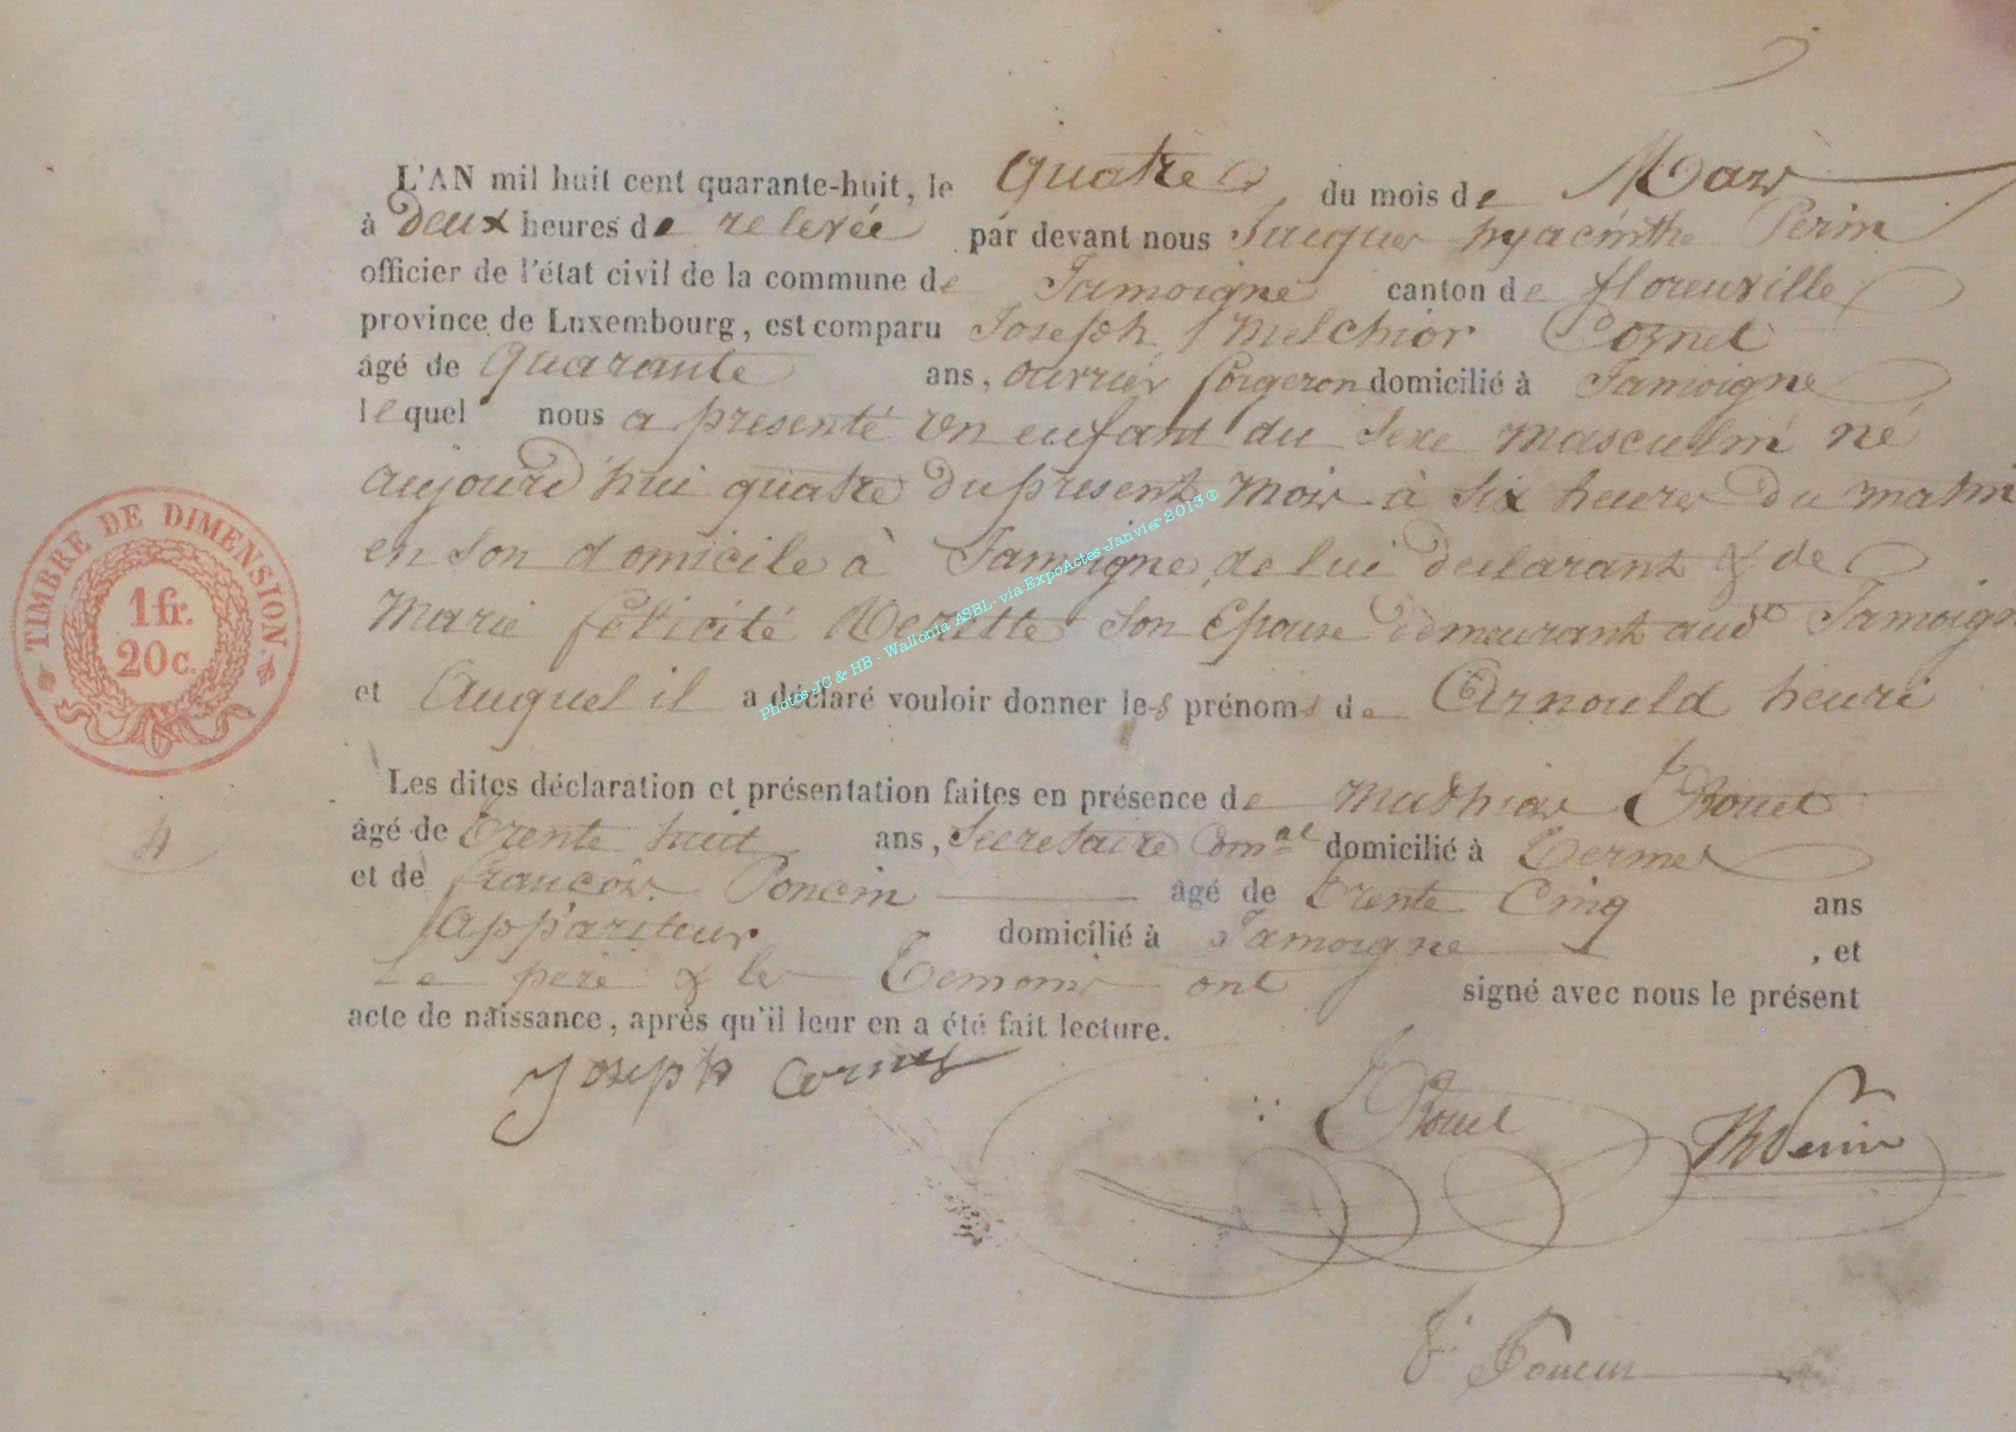 L'AN mil huit cent quarante-huit, le quatre du mois de Mars
à deux heures de relevée par devant nous Jacques hyacinthe Perin
officier de l'état civil de la commune de Jamoigne canton de florenville
province de Luxembourg, est comparu Joseph Melchior Cornet
âgé de quarante ans, ouvrier forgeron domicilié à Jamoigne
lequel nous a presenté un enfant du sexe masculin né
aujourd'hui quatre du present mois à six heures du matin
en son domicile à Jamoigne, de lui declarant & de
Marie félicité son Epouse demeurant aud.t Jamoigne
et Auquel il a déclaré vouloir donner les prénoms de Arnould henri
Les dites déclaration et présentation faites en présence de Mathias
âgé de trente huit ans, Secretaire Com.al domicilié à Termes
et de françois Poncin âgé de trente Cinq ans
appariteur domicilié à Jamoigne, et
Le pere & les temoins ont signé avec nous le présent
acte de naissance, après qu'il leur en a été fait lecture.
Joseph Cornet
Perin
f. Poncin
TIMBRE DE DIMENSION.
1 fr.
20 c.
4
Photos JC & HB - Wallonia ASBL - via ExpoActes-Janvier 2013 ®